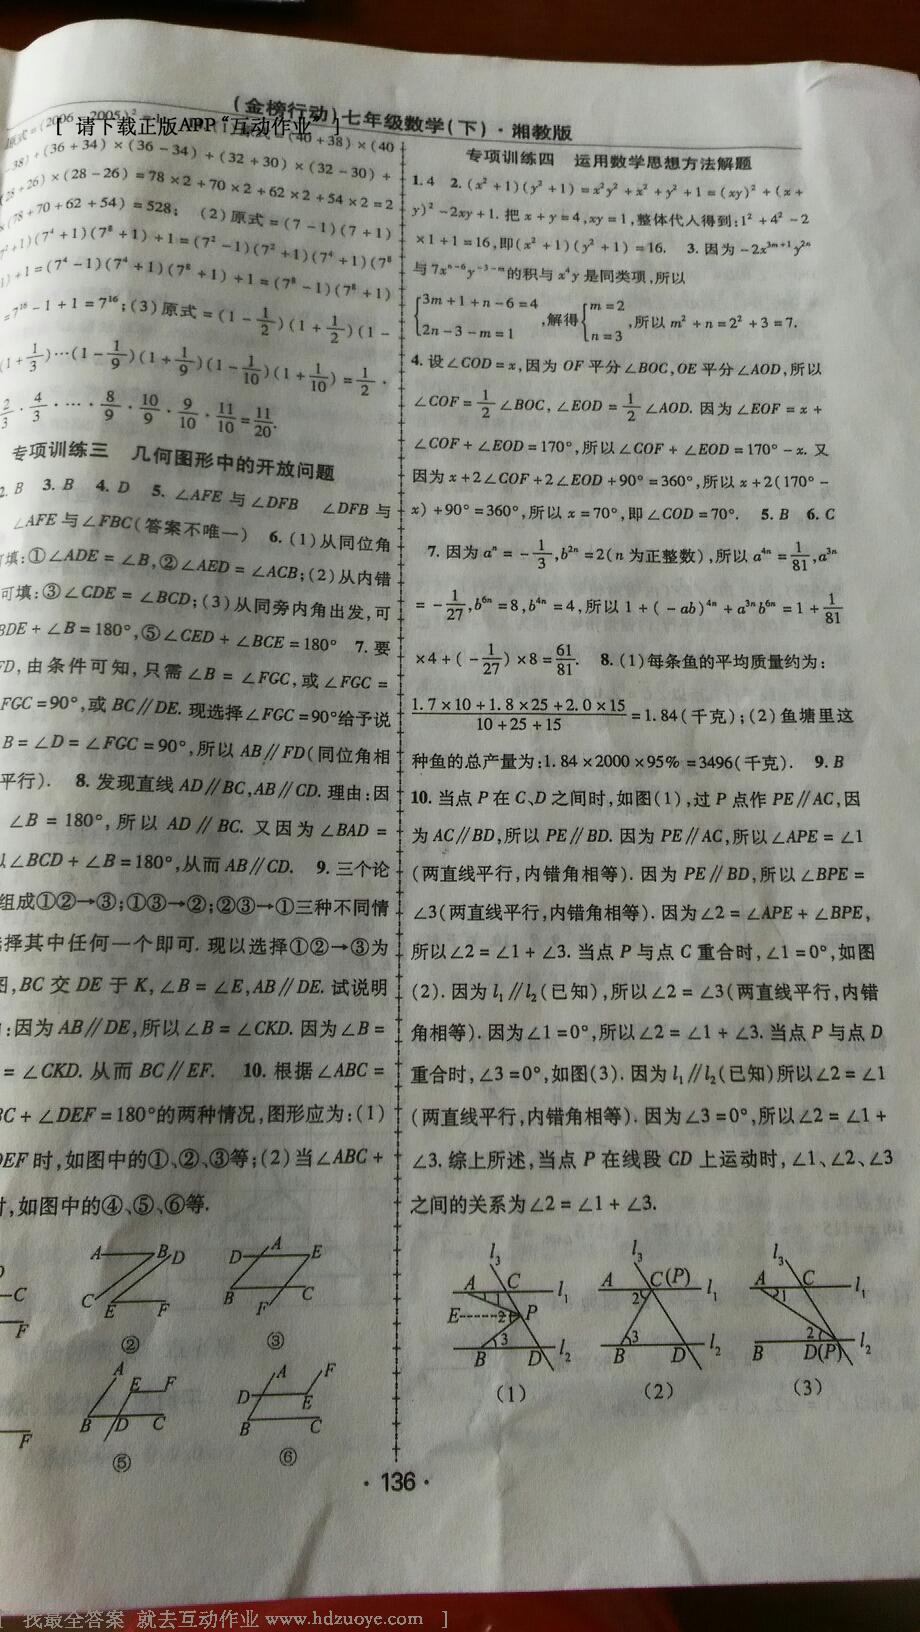 (金榜行动)七年级数学(下)·湘教版
[ 请下载正版APP“互动作业” ]
原式=(2006-2005)²=1
=(40+38)×(40
-38)+(36+34)×(36-34)+(32+30)×(32-30)+
(28+26)×(28-26)=78×2+70×2+62×2+54×2=2
×(78+70+62+54)=528; (2)原式=(7-1)(7+1)
(7²+1)(7⁴+1)(7⁸+1)+1=(7²-1)(7²+1)(7⁴+1)(7⁸
+1)+1=(7⁴-1)(7⁴+1)(7⁸+1)+1=(7⁸-1)(7⁸+1)
=7¹⁶-1+1=7¹⁶;(3)原式=(1-1/2)(1+1/2)(1-
(1+1/3)…(1-1/9)(1+1/9)(1-1/10)(1+1/10)=1/2·
2/3·4/3·…·8/9·10/9·9/10·11/10=11/20.
专项训练三 几何图形中的开放问题
2.B 3.B 4.D 5.∠AFE与∠DFB ∠DFB与
∠AFE与∠FBC(答案不唯一) 6.(1)从同位角
可填:①∠ADE=∠B,②∠AED=∠ACB;(2)从内错
可填:③∠CDE=∠BCD;(3)从同旁内角出发,可
BDE+∠B=180°,⑤∠CED+∠BCE=180° 7.要
FD,由条件可知,只需∠B=∠FGC,或∠FGC=
FGC=90°,或BC∥DE.现选择∠FGC=90°给予说
B=∠D=∠FGC=90°,所以AB∥FD(同位角相
平行). 8.发现直线AD∥BC,AB∥CD.理由:因
∠B=180°,所以AD∥BC.又因为∠BAD=
以∠BCD+∠B=180°,从而AB∥CD. 9.三个论
组成①②→③;①③→②;②③→①三种不同情
选择其中任何一个即可.现以选择①②→③为
图,BC交DE于K,∠B=∠E,AB∥DE.试说明
:因为AB∥DE,所以∠B=∠CKD.因为∠B=
=∠CKD.从而BC∥EF. 10.根据∠ABC=
BC+∠DEF=180°的两种情况,图形应为:(1)
DEF时,如图中的①、②、③等;(2)当∠ABC+
时,如图中的④、⑤、⑥等.
C F
A B D C E F ②
D A E B F C ③
F
A E F B D C ⑤
A F D E B C ⑥
专项训练四 运用数学思想方法解题
1.4 2.(x²+1)(y²+1)=x²y²+x²+y²+1=(xy)²+(x+
y)²-2xy+1.把x+y=4,xy=1,整体代人得到:1²+4²-2
×1+1=16,即(x²+1)(y²+1)=16. 3.因为-2x³ᵐ⁺¹y²ⁿ
与7xⁿ⁻⁶y⁻³⁻ᵐ的积与x⁴y是同类项,所以
{3m+1+n-6=4
2n-3-m=1 ,解得{m=2
n=3 ,所以m²+n=2²+3=7.
4.设∠COD=x,因为OF平分∠BOC,OE平分∠AOD,所以
∠COF=1/2∠BOC,∠EOD=1/2∠AOD.因为∠EOF=x+
∠COF+∠EOD=170°,所以∠COF+∠EOD=170°-x.又
因为x+2∠COF+2∠EOD+90°=360°,所以x+2(170°-
x)+90°=360°,所以x=70°,即∠COD=70°. 5.B 6.C
7.因为aⁿ=-1/3,b²ⁿ=2(n为正整数),所以a⁴ⁿ=1/81,a³ⁿ
=-1/27,b⁶ⁿ=8,b⁴ⁿ=4,所以1+(-ab)⁴ⁿ+a³ⁿb⁶ⁿ=1+1/81
×4+(-1/27)×8=61/81. 8.(1)每条鱼的平均质量约为:
1.7×10+1.8×25+2.0×15/10+25+15=1.84(千克);(2)鱼塘里这
种鱼的总产量为:1.84×2000×95%=3496(千克). 9.B
10.当点P在C、D之间时,如图(1),过P点作PE∥AC,因
为AC∥BD,所以PE∥BD.因为PE∥AC,所以∠APE=∠1
(两直线平行,内错角相等).因为PE∥BD,所以∠BPE=
∠3(两直线平行,内错角相等).因为∠2=∠APE+∠BPE,
所以∠2=∠1+∠3.当点P与点C重合时,∠1=0°,如图
(2).因为l₁∥l₂(已知),所以∠2=∠3(两直线平行,内错
角相等).因为∠1=0°,所以∠2=∠1+∠3.当点P与点D
重合时,∠3=0°,如图(3).因为l₁∥l₂(已知)所以∠2=∠1
(两直线平行,内错角相等).因为∠3=0°,所以∠2=∠1+
∠3.综上所述,当点P在线段CD上运动时,∠1、∠2、∠3
之间的关系为∠2=∠1+∠3.
l₃ A C l₁ E 2 P 3 B D l₂ (1)
l₃ A C(P) l₁ 2 3 B D l₂ (2)
l₃ A C l₁ 1 2 B D(P) l₂ (3)
·136·
[ 找最全答案 就去互动作业 www.hdzuoye.com ]